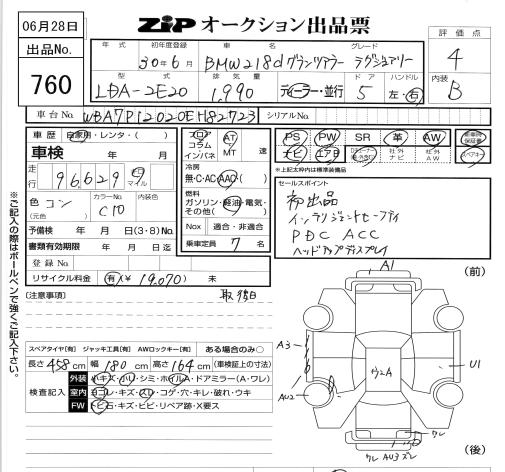 06月28日
ZiPオークション出品票
出品No.
760
年式
初年度登録
車名
グレード
30年6月
BMW218dグランツアラー
ラグジュアリー
評価点
4
型式
排気量
ドア
ハンドル
LDA-2E20
1,990
ディーラー・並行
5
左・右
内装
B
車台No.
WBA7P12020EH82723
シリアルNo.
車歴
自家用・レンタ・( )
車検
年 月
走行
96,629
キロ
マイル
色
コン
(元色)
カラーNo.
C10
内装色
予備検 年 月 日(3・8)No.
書類有効期限 年 月 日迄
登録No.
リサイクル料金
有(¥19,070) 未
フロア
コラム
インパネ
AT
MT
速
冷房
無・C・AC・AAC( )
燃料
ガソリン・軽油・電気・
その他( )
Nox
適合・非適合
乗車定員
7名
PS
PW
SR
革
AW
ナビ
エアB
社外
ナビ
社外
AW
スペアキー
※上記太枠内は標準装備品
セールスポイント
初出品
インテリジェントセーフティ
PDC ACC
ヘッドアップディスプレイ
[注意事項]
取 積日
スペアタイヤ[有] ジャッキ工具[有] AWロックキー[有]
ある場合のみ○
長さ458cm 幅180cm 高さ164cm(車検証上の寸法)
検査記入
外装
小キズ・凹・シミ・ホイルA・ドアミラー(A・ワレ)
室内
ヨゴレ・キズ・スレ・コゲ・穴・キレ・破れ・ウキ
FW
トビ石・キズ・ヒビ・リペア跡・X要ス
※ご記入の際はボールペンで強くご記入下さい。
(前)
A1
A3
U1
AU2
ウレ
ウレ AU3 スレ
(後)